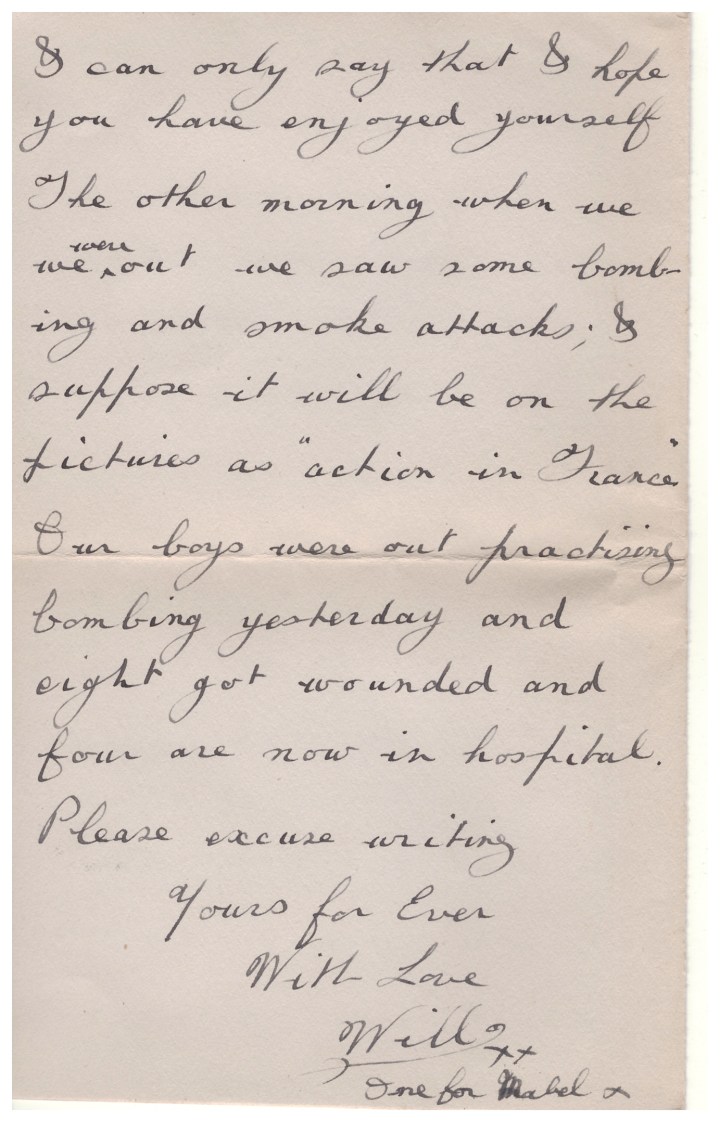 I can only say that I hope
you have enjoyed yourself
The other morning when we
were
we ^ out we saw some bomb-
ing and smoke attacks; I
suppose it will be on the
pictures as "action in France"
Our boys were out practising
bombing yesterday and
eight got wounded and
four are now in hospital.
Please excuse writing
Yours for Ever
With Love
Will xx
One for Mabel x